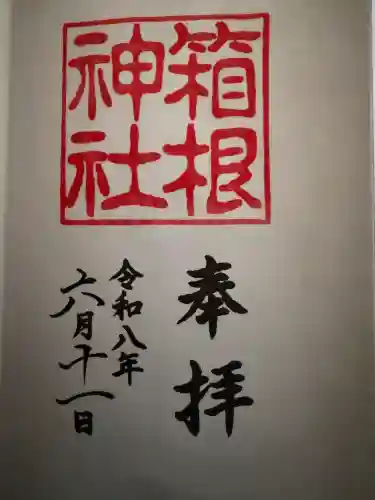 箱根
神社
奉拝
令和八年
六月十一日